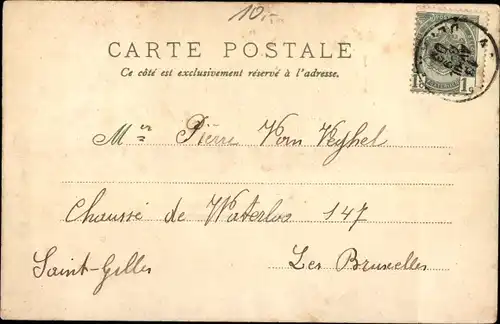 10.-
CARTE POSTALE
Ce côté est exclusivement réservé à l'adresse.
1c 1c
Mer Pierre Vom Veyhel
Chaussé de Waterloo 147
Saint-Gelles Les Bruxelles